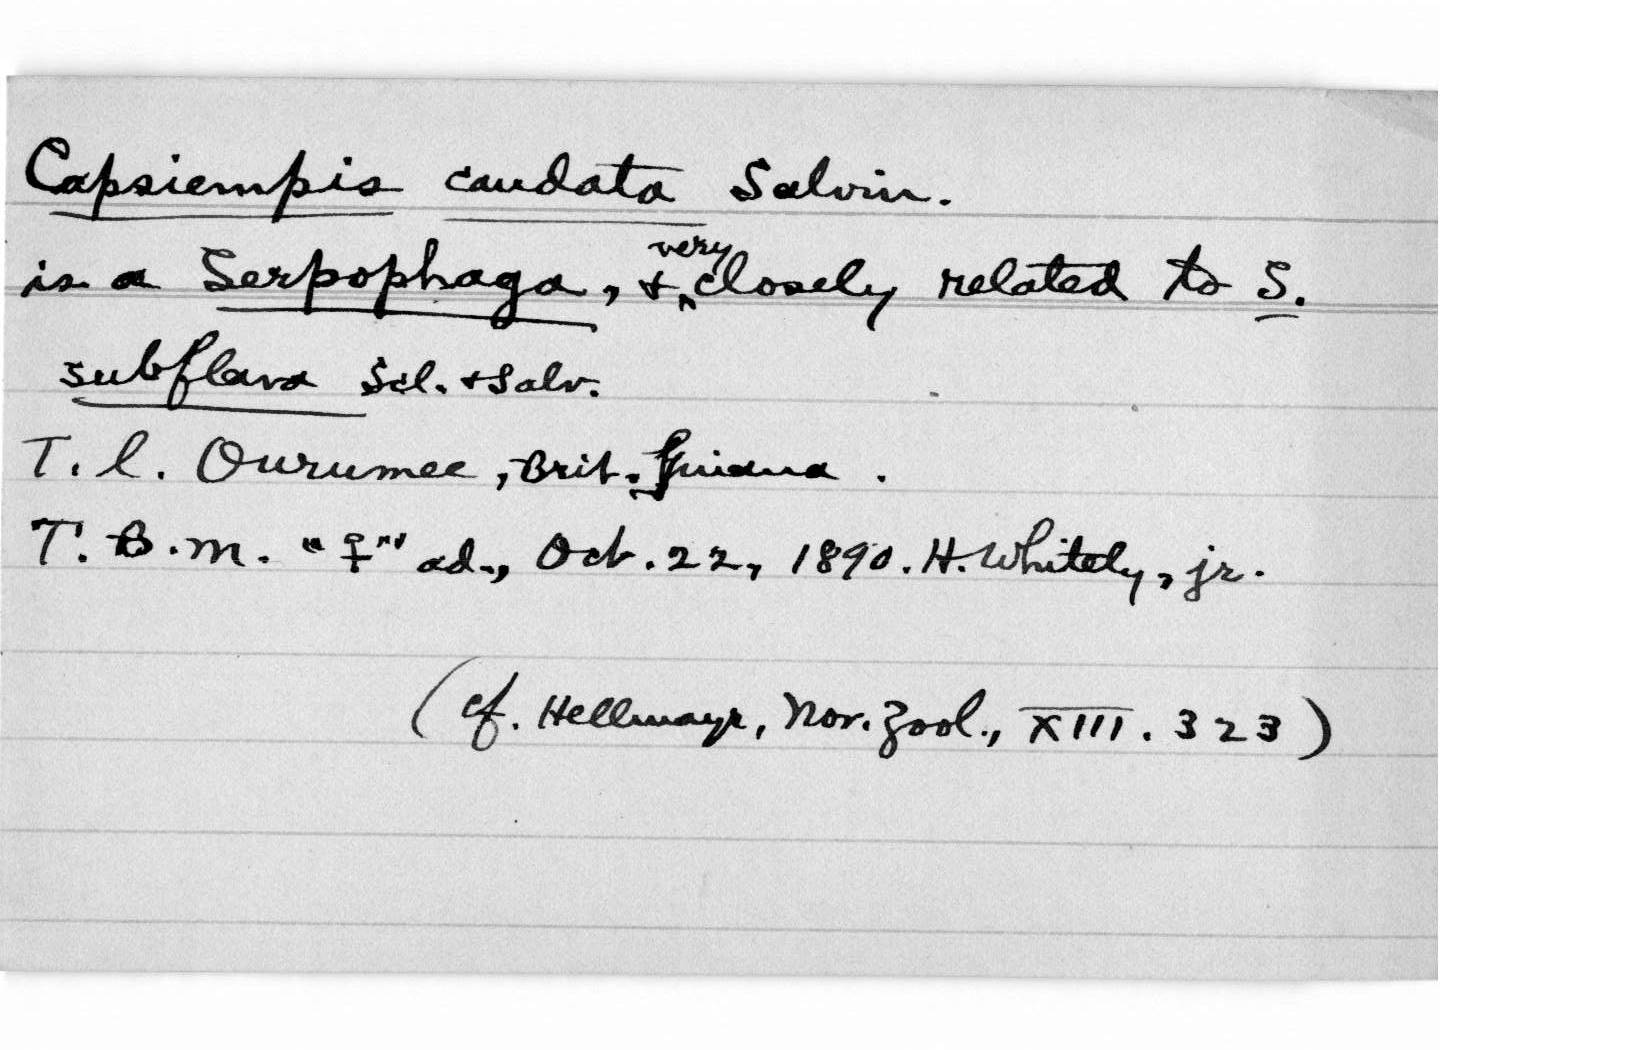 Capsiempis caudata Salvin.
is a Serpophaga, & very closely related to S.
subflava Scl. & Salv.
T. l. Ourumee, Brit. Guiana.
T. B. M. "♀" ad., Oct. 22, 1890. H. Whitely, jr.
(cf. Hellmayr, Nov. Zool., XIII. 323)